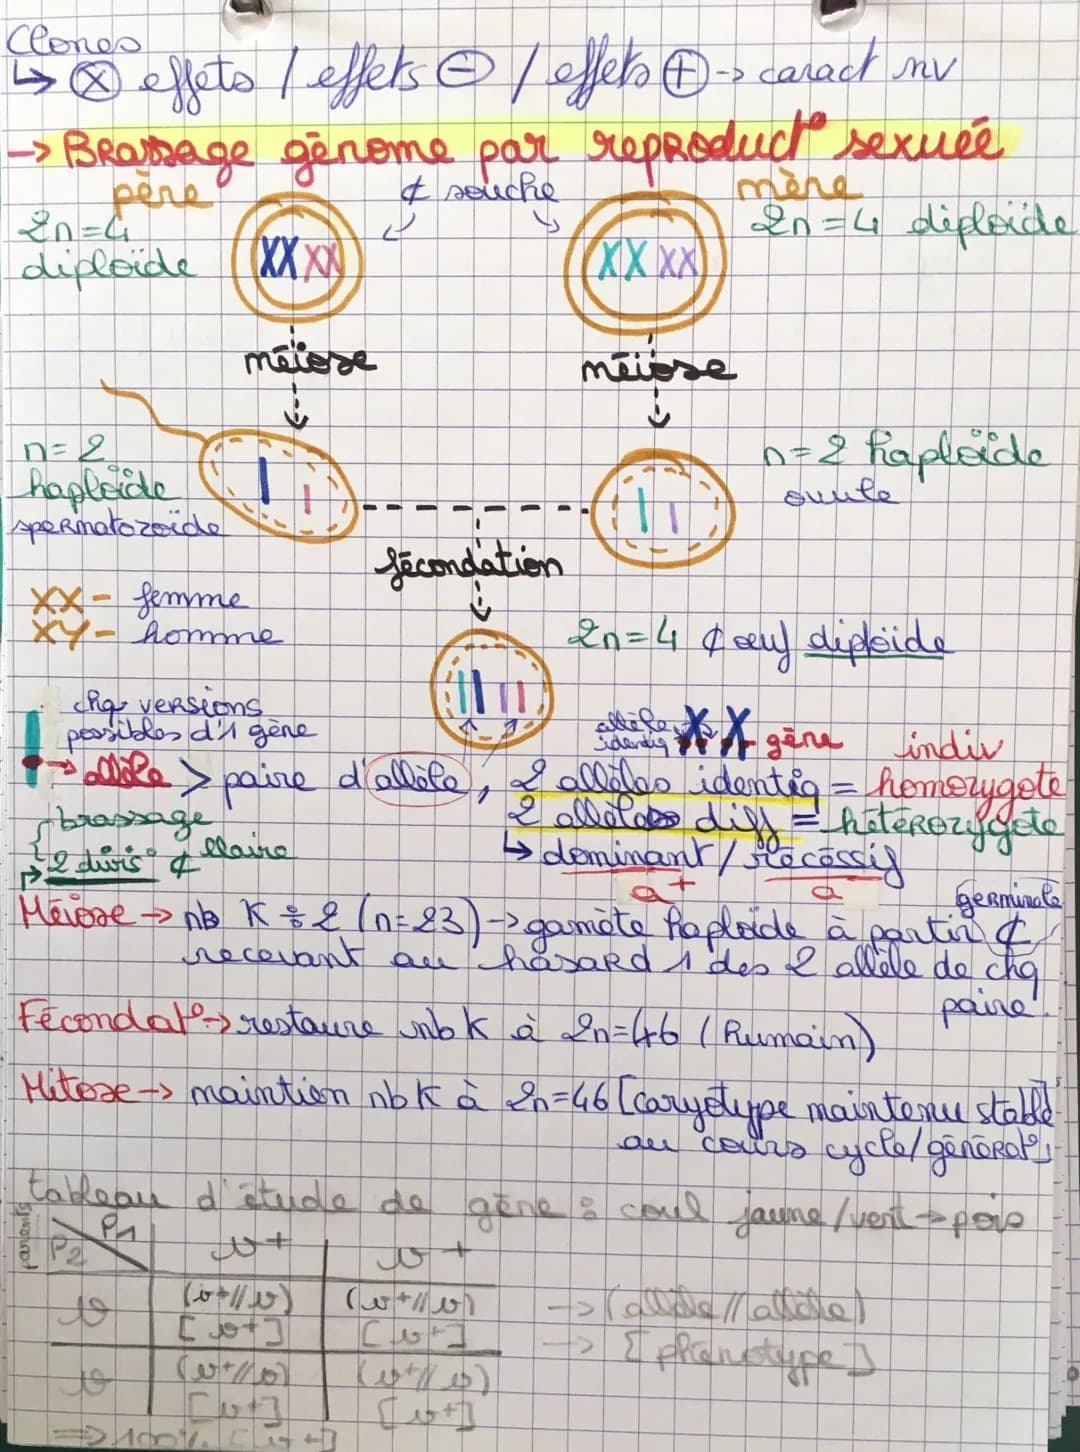 Clones
↳ ⊗ effets / effets ⊖ / effets ⊕ → caract nv
→ Brassage génome par reproductº sexuée
père ¢ souche mère
2n=4 2n=4 diploïde
diploïde
méiose méiose
n=2 n=2 haploïde
haploïde ovule
spermatozoïde
fécondation
XX - femme
XY - homme 2n=4 ¢ œuf diploïde
chq versions
possibles d'1 gène
allèle identiq gène indiv
→ allèle > paire d'allèle, 2 allèles identiq = homozygote
brassage 2 allèles diff = hétérozygote
2 divisº ¢llaire ↳ dominant / récessif
a+ a
Méiose → nb K ÷ 2 (n=23) → gamète haploïde à partir ¢ germinale
recevant au hasard 1 des 2 allèle de chq
paire.
Fécondatº → restaure nb K à 2n=46 (humain)
Mitose → maintien nb K à 2n=46 [caryotype maintenu stable
au cours cycle/génératº]
tableau d'étude de gène : coul jaune/vert → pois
parents P2 P1 v+ v+
v (v+//v) (v+//v) → (allèle//allèle)
[v+] [v+] → [phénotype]
v (v+//v) (v+//v)
[v+] [v+]
⇒ 100% [v+]